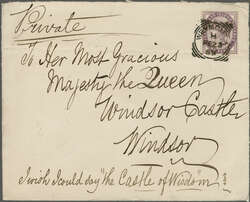 Private
To Her Most Gracious
Majesty the Queen
Windsor Castle
Windsor
I wish I could say "the Castle of Wisdom